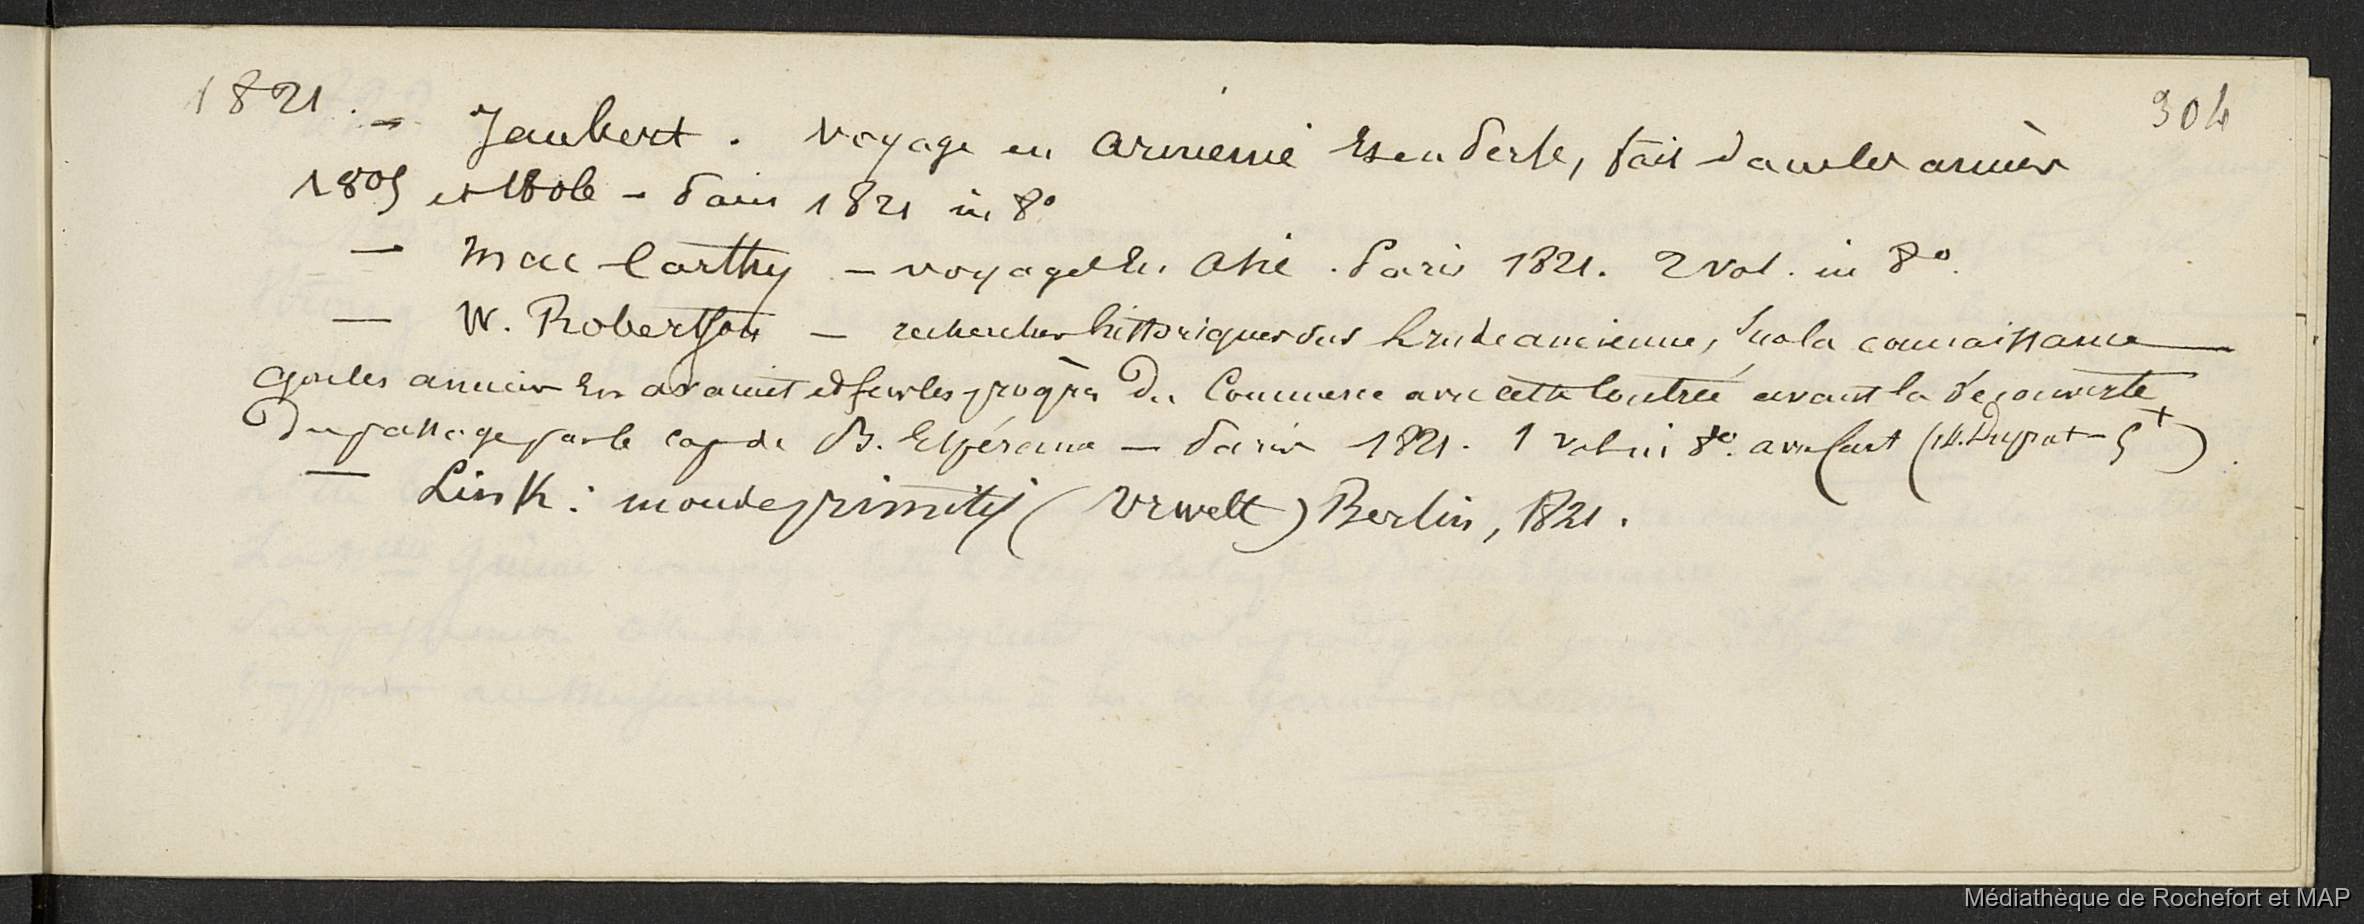 304
1821. - Jaubert. Voyage en armenie et en Perse, fait dans les années
1805 et 1806 - Paris 1821 in 8°
- Mac Carthy - voyage en Asie. Paris 1821. 2 vol. in 8°.
- W. Robertson - recherches historiques sur l'Inde ancienne, sur la connaissance
que les anciens en avaient et sur les progrès du Commerce avec cette Contrée avant la découverte
du passage par le cap de B. Espérance - Paris 1821. 1 vol in 8°. avec Cart (ch. Duprat - 5+)
- Link : monde primitif (Urwelt) Berlin, 1821.
Médiathèque de Rochefort et MAP